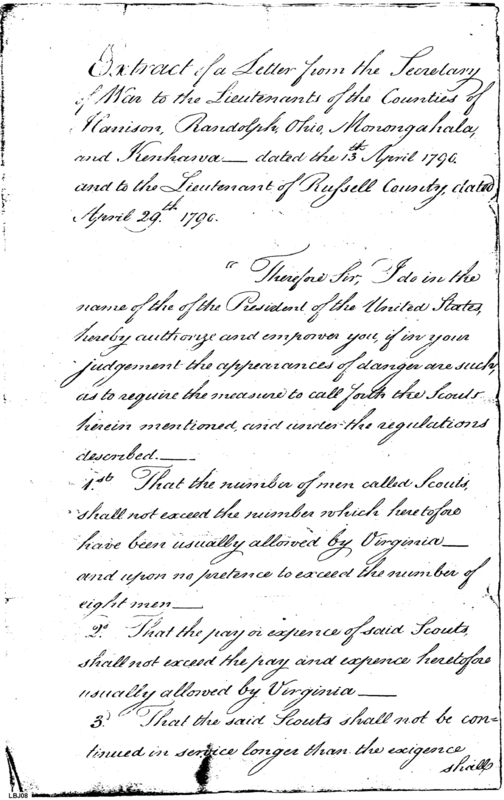 Extract of a Letter from the Secretary
of War to the Lieutenants of the Counties of
Harrison, Randolph, Ohio, Monongahala,
and Kenhawa — dated the 13th April 1790.
and to the Lieutenant of Russell County, dated
April 29th. 1790.
"Therefore Sir, I do in the
name of the of the President of the United States,
hereby authorize and empower you, if in your
judgement the appearances of danger are such,
as to require the measure to call forth the Scouts
herein mentioned, and under the regulations
described. —
1st. That the number of men called Scouts,
shall not exceed the number which heretofore
have been usually allowed by Virginia —
and upon no pretence to exceed the number of
eight men —
2d. That the pay or expence of said Scouts,
shall not exceed the pay and expence heretofore
usually allowed by Virginia —
3d. That the said Scouts shall not be con=
tinued in service longer than the exigence
shall
LBJ08